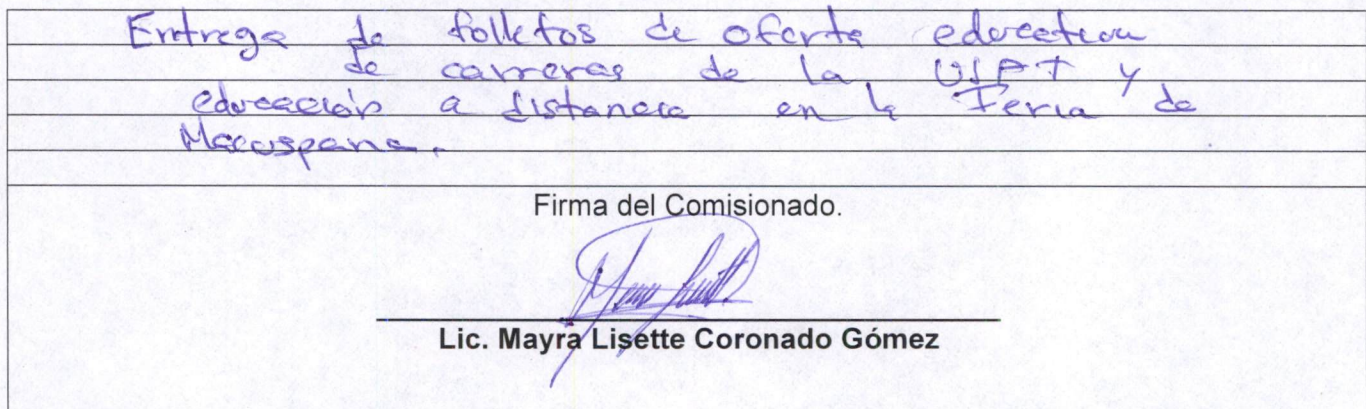 Entrega de folletos de oferta educativa
de carreras de la UJPT y
educación a distancia en la Feria de
Macuspana.
Firma del Comisionado.
Lic. Mayra Lisette Coronado Gómez